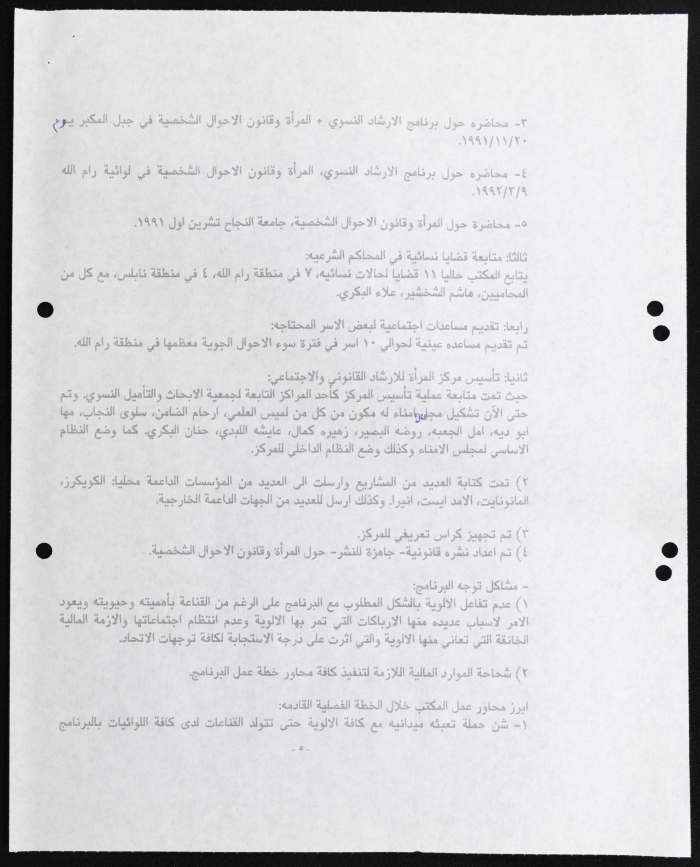 ٣- محاضره حول برنامج الارشاد النسوي + المرأة وقانون الاحوال الشخصية في جبل المكبر يوم
٢٠/١١/١٩٩١.
٤- محاضره حول برنامج الارشاد النسوي، المرأة وقانون الاحوال الشخصية في لوائية رام الله
٩/٢/١٩٩٢.
٥- محاضرة حول المرأة وقانون الاحوال الشخصية، جامعة النجاح تشرين اول ١٩٩١.
ثالثا: متابعة قضايا نسائية في المحاكم الشرعيه:
يتابع المكتب حاليا ١١ قضايا لحالات نسائيه، ٧ في منطقة رام الله، ٤ في منطقة نابلس، مع كل من
المحاميين، هاشم الشخشير، علاء البكري.
رابعا: تقديم مساعدات اجتماعية لبعض الاسر المحتاجه:
تم تقديم مساعده عينية لحوالي ١٠ اسر في فترة سوء الاحوال الجوية معظمها في منطقة رام الله.
ثانيا: تأسيس مركز المرأة للارشاد القانوني والاجتماعي:
حيث تمت متابعة عملية تأسيس المركز كأحد المراكز التابعة لجمعية الابحاث والتأميل النسوي. وتم
حتى الأن تشكيل مجلس امناء له مكون من كل من لميس العلمي، ارحام الضامن، سلوى النجاب، مها
ابو ديه، امل الجعبه، روضه البصير، زهيره كمال، عايشه اللبدي، حنان البكري. كما وضع النظام
الاساسي لمجلس الامناء وكذلك وضع النظام الداخلي للمركز.
٢) تمت كتابة العديد من المشاريع وارسلت الى العديد من المؤسسات الداعمة محليا: الكويكرز،
المانونايت، الامد ايست، انيرا. وكذلك ارسل للعديد من الجهات الداعمة الخارجية.
٣) تم تجهيز كراس تعريفي للمركز.
٤) تم اعداد نشره قانونية- جاهزة للنشر- حول المرأة وقانون الاحوال الشخصية.
- مشاكل توجه البرنامج:
١) عدم تفاعل الالوية بالشكل المطلوب مع البرنامج على الرغم من القناعة بأهميته وحيويته ويعود
الامر لاسباب عديده منها الارباكات التي تمر بها الالوية وعدم انتظام اجتماعاتها والازمة المالية
الخانقة التي تعاني منها الالوية والتي اثرت على درجة الاستجابة لكافة توجهات الاتحاد.
٢) شحاحة الموارد المالية اللازمة لتنفيذ كافة محاور خطة عمل البرنامج.
ابرز محاور عمل المكتب خلال الخطة الفصلية القادمه:
١- شن حملة تعبئه ميدانيه مع كافة الالوية حتى تتولد القناعات لدى كافة اللوائيات بالبرنامج
- ٥ -